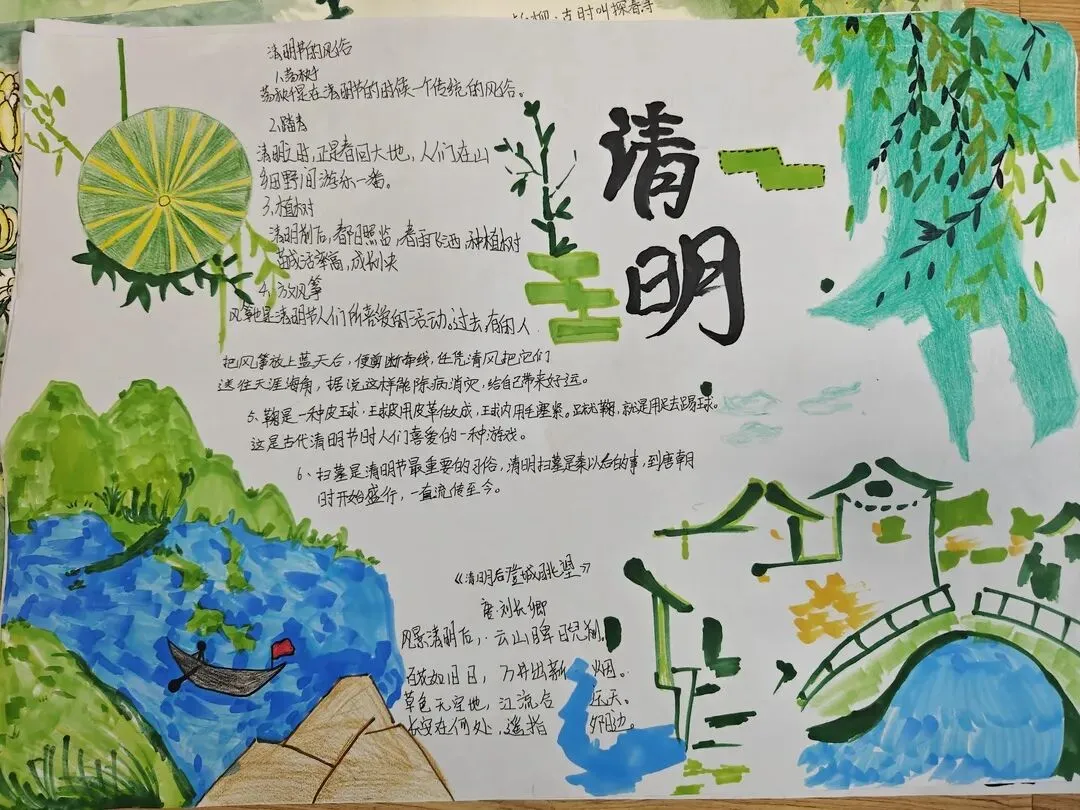 柳：古时叫探春寺
清明
清明节的风俗
1、荡秋千
荡秋千是在清明节的时候一个传统的风俗。
2、踏青
清明之时，正是春回大地，人们在山
乡田野间游乐一番。
3、植树
清明前后，春阳照监，春雨飞洒，种植树
苗成活率高，成长快
4、放风筝
风筝也是清明节人们所喜爱的活动。过去，有的人
把风筝放上蓝天后，便剪断牵线，任凭清风把它们
送往天涯海角，据说这样能除病消灾，给自己带来好运。
5、鞠是一种皮球，球皮用皮革做成，球内用毛塞紧。蹴鞠，就是用足去踢球。
这是古代清明节时人们喜爱的一种游戏。
6、扫墓是清明节最重要的习俗，清明扫墓是秦以后的事，到唐朝
时开始盛行，一直流传至今。
《清明后登城眺望》
唐·刘长卿
风景清明后，云山睥睨前。
百花如旧日，万井出新烟。
草色无空地，江流合远天。
长安在何处，遥指夕阳边。